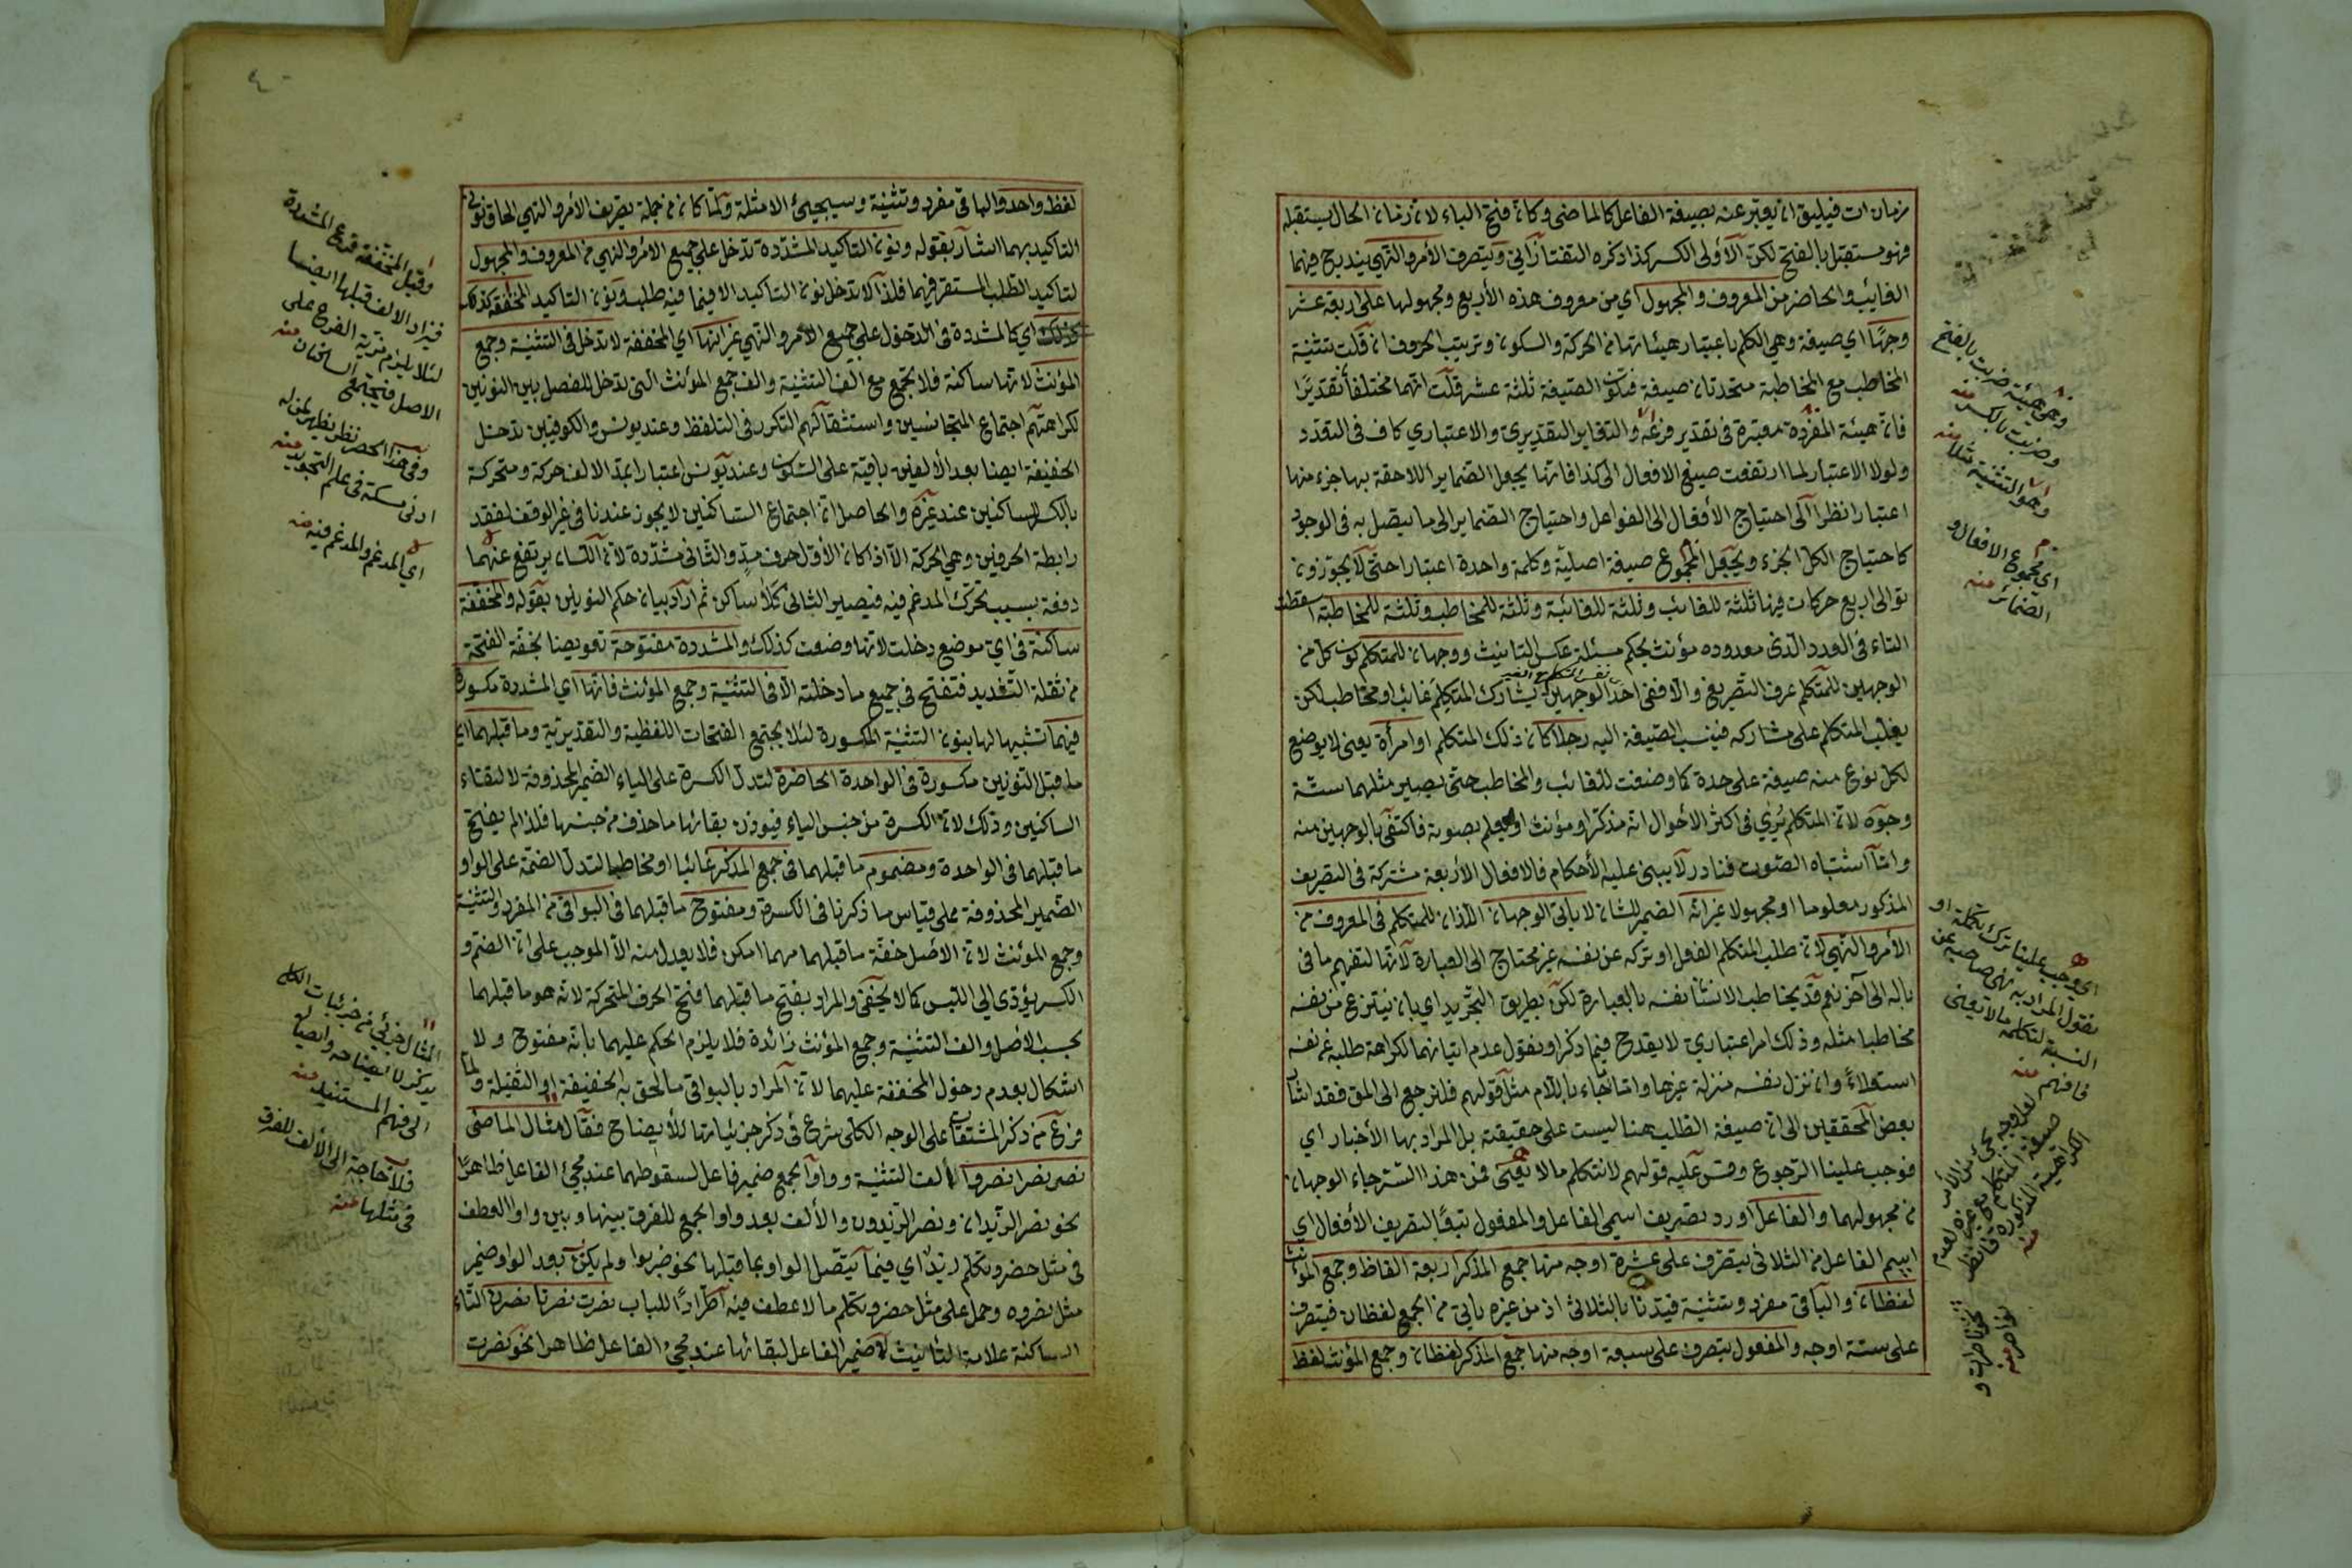 زمان ات فيليق ان يعبّر عنه بصيغة الفاعل كالماضى وكانّ فتح الباء لانّ زمان الحال يستقبله
فهو مستقبل بالفتح لكنّ الأولى الكسر كذا ذكره التفتازانى ويتصرف الأمر والنهى يندرج فيهما
الغائب والحاضر من المعروف والمجهول أي من معروف هذه الأربع ومجهولها على اربعة عشر
وجهًا اي صيغة وهي الكلم باعتبار هيئاتها من الحركة والسكون وترتيب الحروف ان قلت تثنية
المخاطب مع المخاطبة متحدتان صيغة فتكون الصيغة ثلثة عشر قلت انهما مختلفتا تقديرًا
فانّ هيئة المفردة معتبرة فى تقدير فرعه والتغاير التقديرى والاعتباري كاف فى التعدد
ولولا الاعتبار لما ارتفعت صيغ الافعال الى كذا فانها يجعل الضماير اللاحقة بها جزء منها
اعتبارا نظرا الى احتياج الأفعال الى الفواعل واحتياج الضماير الى ما يتصل به فى الوجود
كاحتياج الكل الجزء ويجعل المجموع صيغة اصلية وكلمة واحدة اعتبارا حتى لا يجوزون
توالى اربع حركات فيها ثلثة للغائب وثلثة للغائبة وثلثة للمخاطب وثلثة للمخاطبة اسقطت
التاء فى العدد الّذى معدوده مؤنث بحكم مسئلة عكس التانيث ووجهان للمتكلم كون كل من
الوجهين للمتكلم عرف التصريفى والّا ففى احد الوجهين يشارك المتكلم غائب او مخاطب لكن
نفس المتكلم مع الغير
يغلب المتكلم على مشاركه فينسب الصيغة اليه رجلا كان ذلك المتكلم او امرأة يعنى لا يوضع
لكل نوع منه صيغة على حدة كما وضعت للغائب والمخاطب حتى يصير مثلهما ستّة
وجوه لانّ المتكلم يُرى فى اكثر الأحوال انه مذكر او مؤنث او يعلم بصوته فاكتفى بالوجهين منه
وامّا اشتباه الصّوت فنادر لا يبنى عليه الأحكام فالافعال الأربعة مشتركة فى التصريف
المذكور معلوما او مجهولا غير انّه الضمير للشان لا ياتى الوجهان اللذان للمتكلم فى المعروف من
الأمر والنّهى لانّ طلب المتكلم الفعل او تركه عن نفسه غير محتاج الى العبارة لانّها لتفهيم ما فى
باله الى آخر نعم قد يخاطب الانسان نفسه بالعبارة لكن بطريق التجريد اي بان ينتزع من نفسه
مخاطبا مثله وذلك امر اعتباري لا يقدح فيما ذكر او نقول عدم اتيانهما لكراهة طلبه عن نفسه
استعلاءً وان نزل نفسه منزلة غيرها وامّا ما جاء باللام مثل قولهم فلنرجع الى المق فقد اشار
بعض المحققين الى انّ صيغة الطلب هنا ليست على حقيقته بل المراد بها الأخبار أي
فوجب علينا الرّجوع وقس عليه قولهم لا نتكلم ما لا يعنى فمن هذا السّر جاء الوجهان
من مجهولهما والفاعل اورد تصريف اسمي الفاعل والمفعول تبعًا لتصريف الأفعال اي
اسم الفاعل من الثلاثى يتصرف على عشرة اوجه منها جمع المذكر اربعة الفاظ وجمع المؤنث
لفظان والباقى مفرد وتثنية قيدنا بالثلاثى اذ من غيره ياتى من الجمع لفظان فيتصرف
على ستة اوجه والمفعول يتصرف على سبعة اوجه منها جمع المذكر لفظان وجمع المؤنث لفظ
وهى هيئة ضربت بالفتح
وضربت بالكسر منه
وهو التثنية مثلا منه
اي مجموع الافعال و
الضمائر منه
اى وجب علينا ترك تكلمه او
نقول المراد به نهى صاحبه عن
النسبة لتكلمه ما لا يعنى
فافهم منه
لفظ واحد والباقى مفرد وتثنية وسيجيئ الامثلة ولمّا كان من جملة تصريف الأمر والنهي الحاق نونى
التاكيد بهما اشار بقوله ونون التاكيد المشدّدة تدخل على جميع الامر والنهي من المعروف والمجهول
لتاكيد الطّلب المستقر فيهما فلذا لا تدخل نون التاكيد الا فيما فيه طلب ونون التاكيد المخففة كذلك
كذلك اي كالمشددة فى الدخول على جميع الأمر والنهي غير انها اي المخففة لا تدخل فى التثنية وجمع
المؤنث لانها ساكنة فلا تجمع مع الف التثنية والف جمع المؤنث التى تدخل للفصل بين النونين
لكراهتهم اجتماع المتجانسين واستثقالهم التكرر فى التلفظ وعند يونس والكوفيين تدخل
الخفيفة ايضا بعد الألفين باقية على السّكون وعند يونس اعتبارا بمدّ الالف حركة ومتحركة
بالكسر للساكنين عند غيره والحاصل انّ اجتماع السّاكنين لا يجوز عندنا فى غير الوقف لفقد
رابطة الحرفين وهي الحركة الّا اذا كان الأوّل حرف مدٍّ والثّانى مشدّدة لانّ اللّسان يرتفع عنهما
دفعة بسبب تحرّك المدغم فيه فيصير الثانى كلا ساكن ثم أراد بيان حكم النونين بقوله والمخفّفة
ساكنة فى اي موضع دخلت لانها وضعت كذلك والمشددة مفتوحة تعويضا بخفة الفتحة
من ثقلة التّشديد فتفتح فى جميع ما دخلته الّا فى التثنية وجمع المؤنث فانّها اي المشددة مكسورة
فيهما تشبيها لها بنون التثنية المكسورة لئلا يجتمع الفتحات اللفظية والتقديرية وما قبلهما اي
ما قبل النونين مكسورة فى الواحدة الحاضرة لتدل الكسرة على الياء الضمير المحذوفة لالتقاء
الساكنين وذلك لانّ الكسرة من جنس الياء فيوذن بقائها ما حذف من جنسها فلذا لم يفتح
ما قبلهما فى الواحدة ومضموم ما قبلهما فى جمع المذكر غائبا او مخاطبا لتدلّ الضمّة على الواو
الضّمير المحذوفة على قياس ما ذكرنا فى الكسرة ومفتوح ما قبلهما فى البواقى من المفرد والتثنية
وجمع المؤنث لانّ الأصل خفّة ما قبلهما مهما امكن فلا يعدل منه الّا لموجب على انّ الضم و
الكسر يؤدى الى اللّبس كما لا يخفى والمراد بفتح ما قبلهما فتح الحرف المتحركة لانّه هو ما قبلهما
بحسب الأصل والف التثنية وجمع المؤنث زائدة فلا يلزم الحكم عليهما بانّه مفتوح ولا
اشكال بعدم دخول المخففة عليهما لانّ المراد بالبواقى ما لحق به الخفيفة او الثقيلة ولما
فرغ من ذكر المشتقات على الوجه الكلّى شرع فى ذكر جزئياتها للأيضاح فقال مثال الماضى
نصر نصرا نصروا ألف التثنية وواو الجمع ضمير فاعل لسقوطهما عند مجئ الفاعل ظاهرًا
نحو نصر الزيدان ونصر الزيدون والألف بعد واو الجمع للفرق بينها وبين واو العطف
فى مثل حضر وتكلم زيد اي فيما يتّصل الواو بما قبلها نحو ضربوا ولم يكن بعد الواو ضمير
مثل نصروه وحمل على مثل حضر وتكلم ما لا عطف فيه اطّرادًا للباب نصرت نصرتا نصرن التاء
الساكنة علامة التأنيث لا ضمير الفاعل لبقائها عند مجئ الفاعل ظاهرا نحو نصرت
وقيل المخففة فرع المشددة
فيزاد الالف قبلها ايضا
لئلا يلزم مزية الفرع على
الاصل فيجتمع الساكنان منه
وفى هذا الحصر نظر يظهر لمن له
ادنى مسكة فى علم التجويد منه
اي المدغم والمدغم فيه منه
المثال جزئى من جزئيات الكلى
يذكر لايضاحه وايصاله
الى فهم المستفيد منه
فلا حاجة الى الألف للفرق
فى مثلها منه